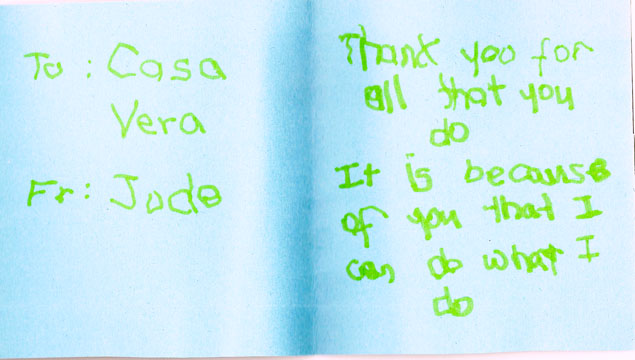 To: Casa
Vera
Fr: Jude
Thank you for
all that you
do
It is because
of you that I
can do what I
do